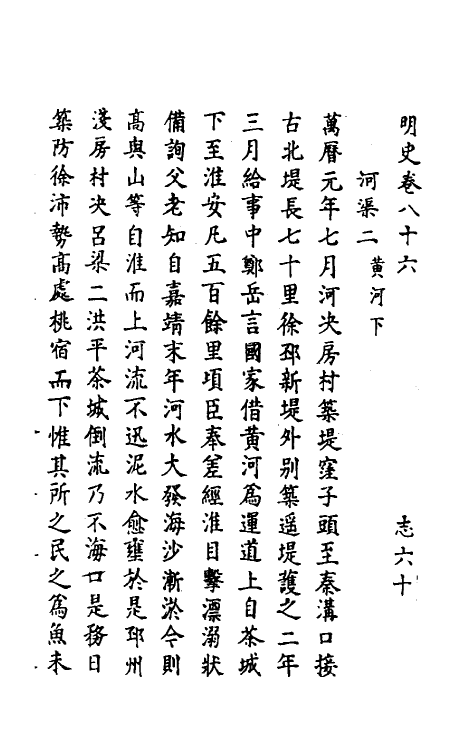 明史卷八十六　志六十
河渠二　黃河下
萬曆元年七月河决房村築堤窪子頭至秦溝口接
古北堤長七十里徐邳新堤外别築遥堤護之二年
三月給事中鄭岳言國家借黄河爲運道上自茶城
下至淮安凡五百餘里頃臣奉差經淮目擊漂溺狀
備詢父老知自嘉靖末年河水大發海沙漸淤今則
高與山等自淮而上河流不迅泥水愈壅於是邳州
淺房村决呂梁二洪平茶城倒流乃不海口是務日
築防徐沛勢高處桃宿而下惟其所之民之爲魚未